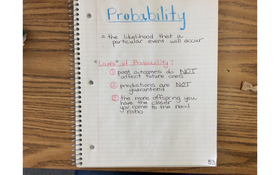 Probability
= the likelihood that a
particular event will occur
"Laws" of Probability:
① past outcomes do NOT
affect future ones
② predictions are NOT
guaranteed
③ the more offspring you
have the closer
you come to the
ratio
53